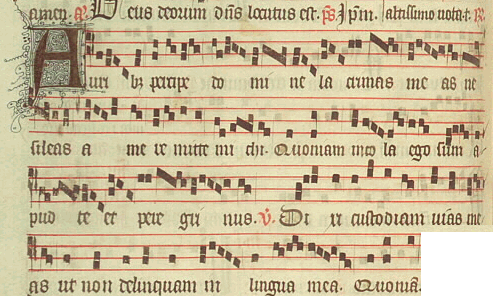 amen. a. Deus deorum dns locutus est. ps. Ipm. altissimo uota. t. R.
Auri bz percipe do mi ne la crimas me as ne
sileas a me re mitte mi chi. Quoniam inco la ego sum a
pud te et pere gri nus. v. Di xi custodiam uias me
as ut non delinquam in lingua mea. Quonia.